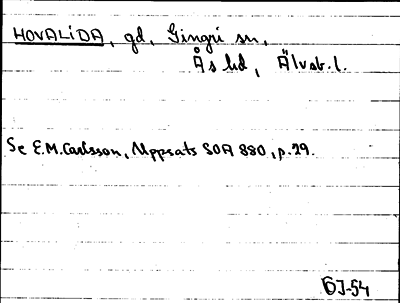 HOVALIDA, gd, Gingri sn,
Ås hd, Älvsb. l.
Se E.M. Carlsson, Uppsats SOA 880, p. 29.
GJ-54